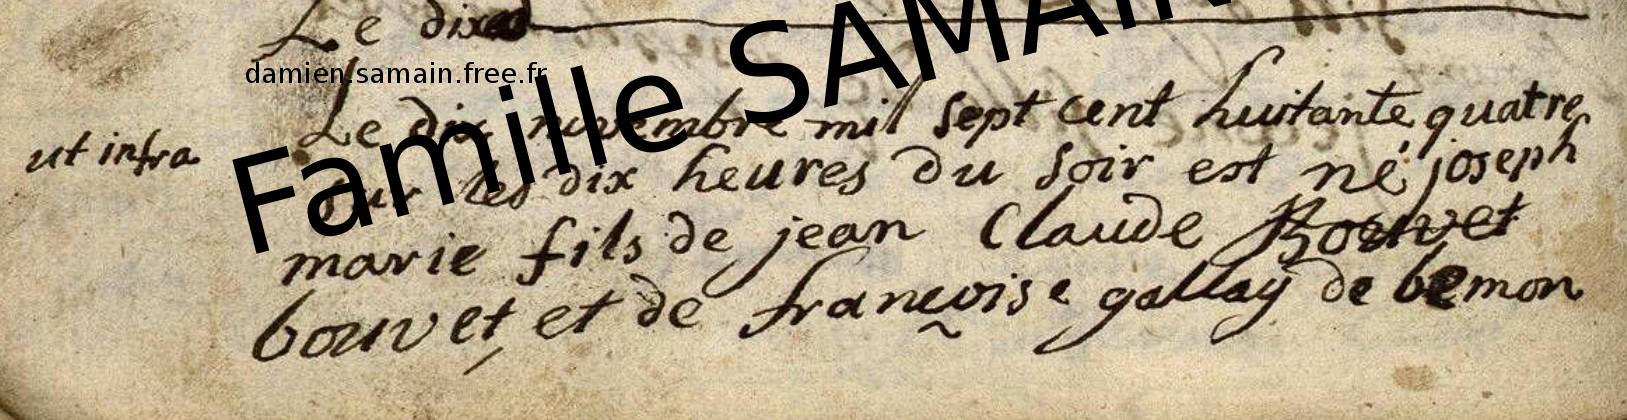 Le dixed
Famille SAMAIN
damien.samain.free.fr
Le dix novembre mil sept cent huitante quatre
ut infra
sur les dix heures du soir est né joseph
marie fils de jean Claude Bouvet
bouvet, et de françoise gallay de bemon